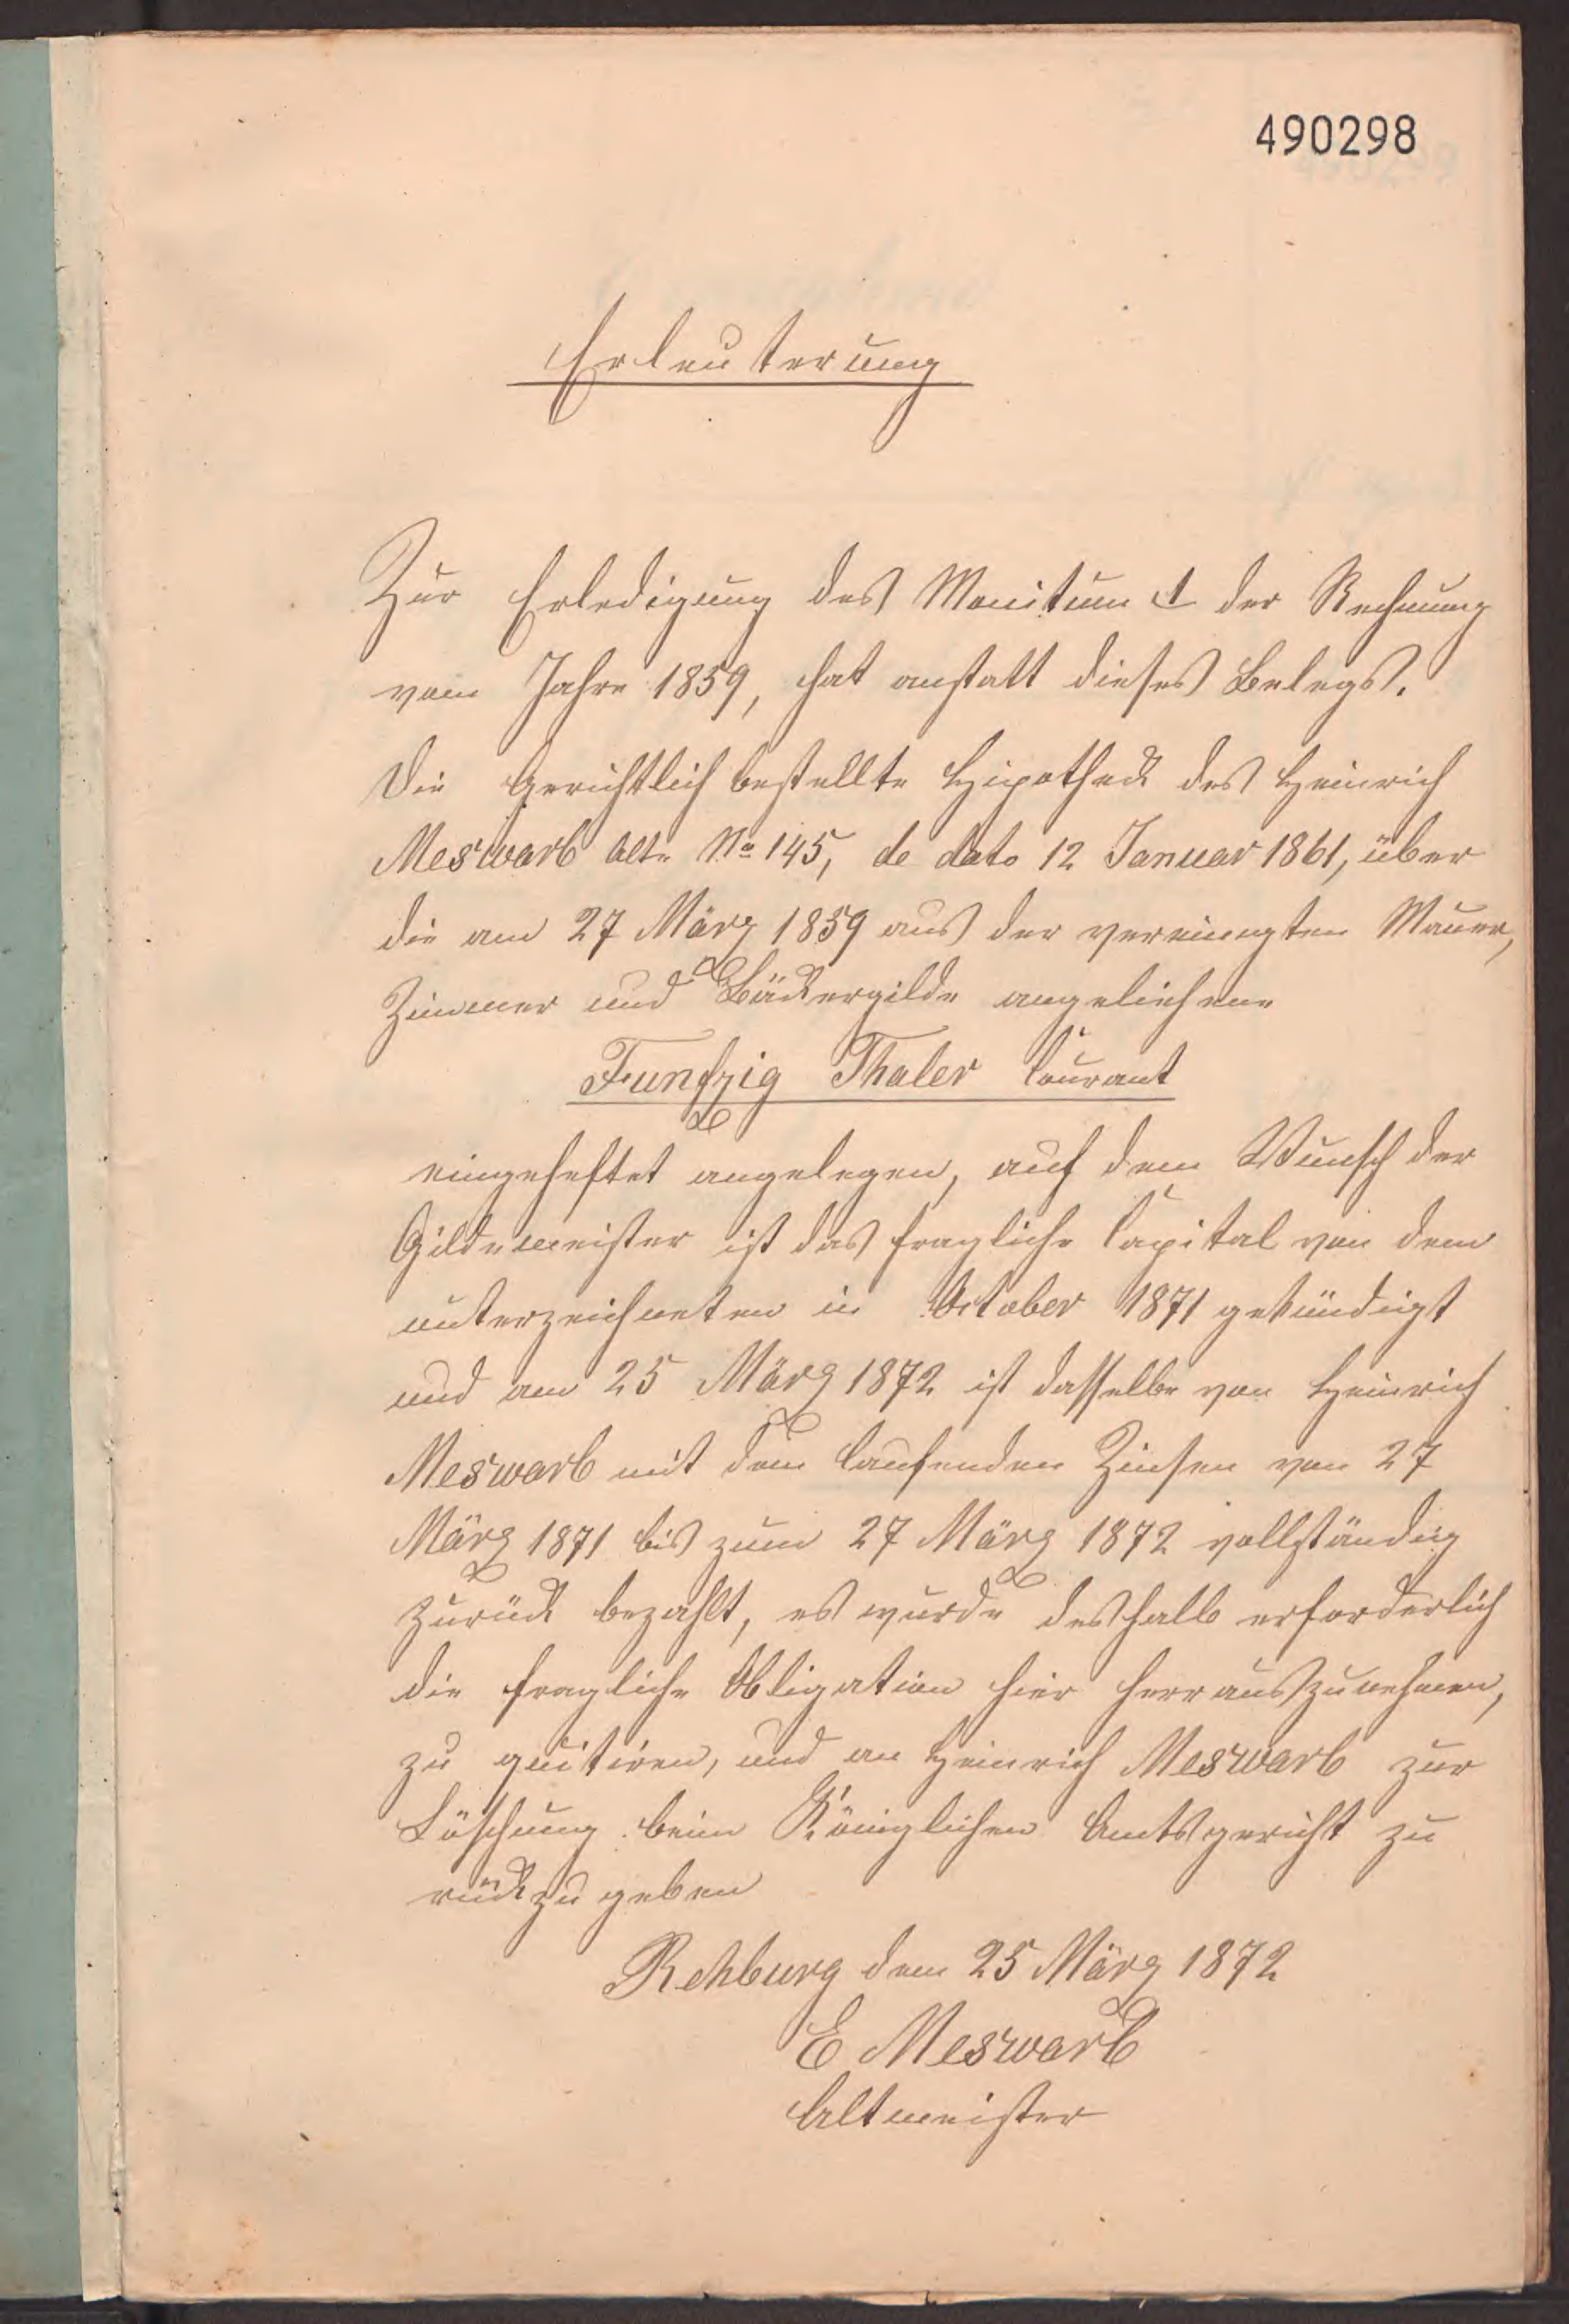 490298
Erleuterung
Zur Erledigung des Monitum 1 der Rechnung
vom Jahre 1859, hat anstatt dieses Belegs.
Die Gerichtlich bestellte Hipotheck des Heinrich
Meswarb alte No 145, de dato 12 Januar 1861, über
die am 27 März 1859 aus der vereinigten Mauer,
Zimmer und Bäckergilde angeliehene
Funfzig Thaler Courant
eingeheftet angelegen, auf dem Wunsch der
Gildemeister ist das fragliche Capital von dem
unterzeichneten in October 1871 gekündigt
und am 25 März 1872 ist dasselbe von Heinrich
Meswarb mit dem laufenden Zinsen von 27
März 1871 bis zum 27 März 1872 vollständig
zurück bezahlt, es wurde deshalb erforderlich
die fragliche Obligation hier herrauszunehmen,
zu quitiren, und an Heinrich Meswarb zur
Löschung beim Königlichen Amtsgericht zu
rückzugeben
Rehburg dem 25 März 1872
E Meswarb
Altmeister